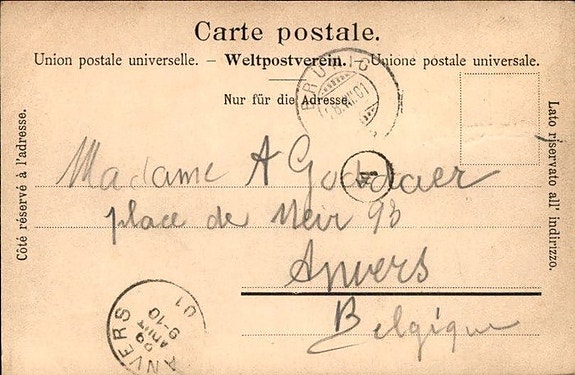 Carte postale.
Union postale universelle. – Weltpostverein. – Unione postale universale.
Nur für die Adresse.
Côté réservé à l'adresse.
Lato riservato all' indirizzo.
BRUNIG
VII.01
4
Madame A Goddaer
place de Meir 93
Anvers
Belgique
ANVERS
9-10
AOUT
01